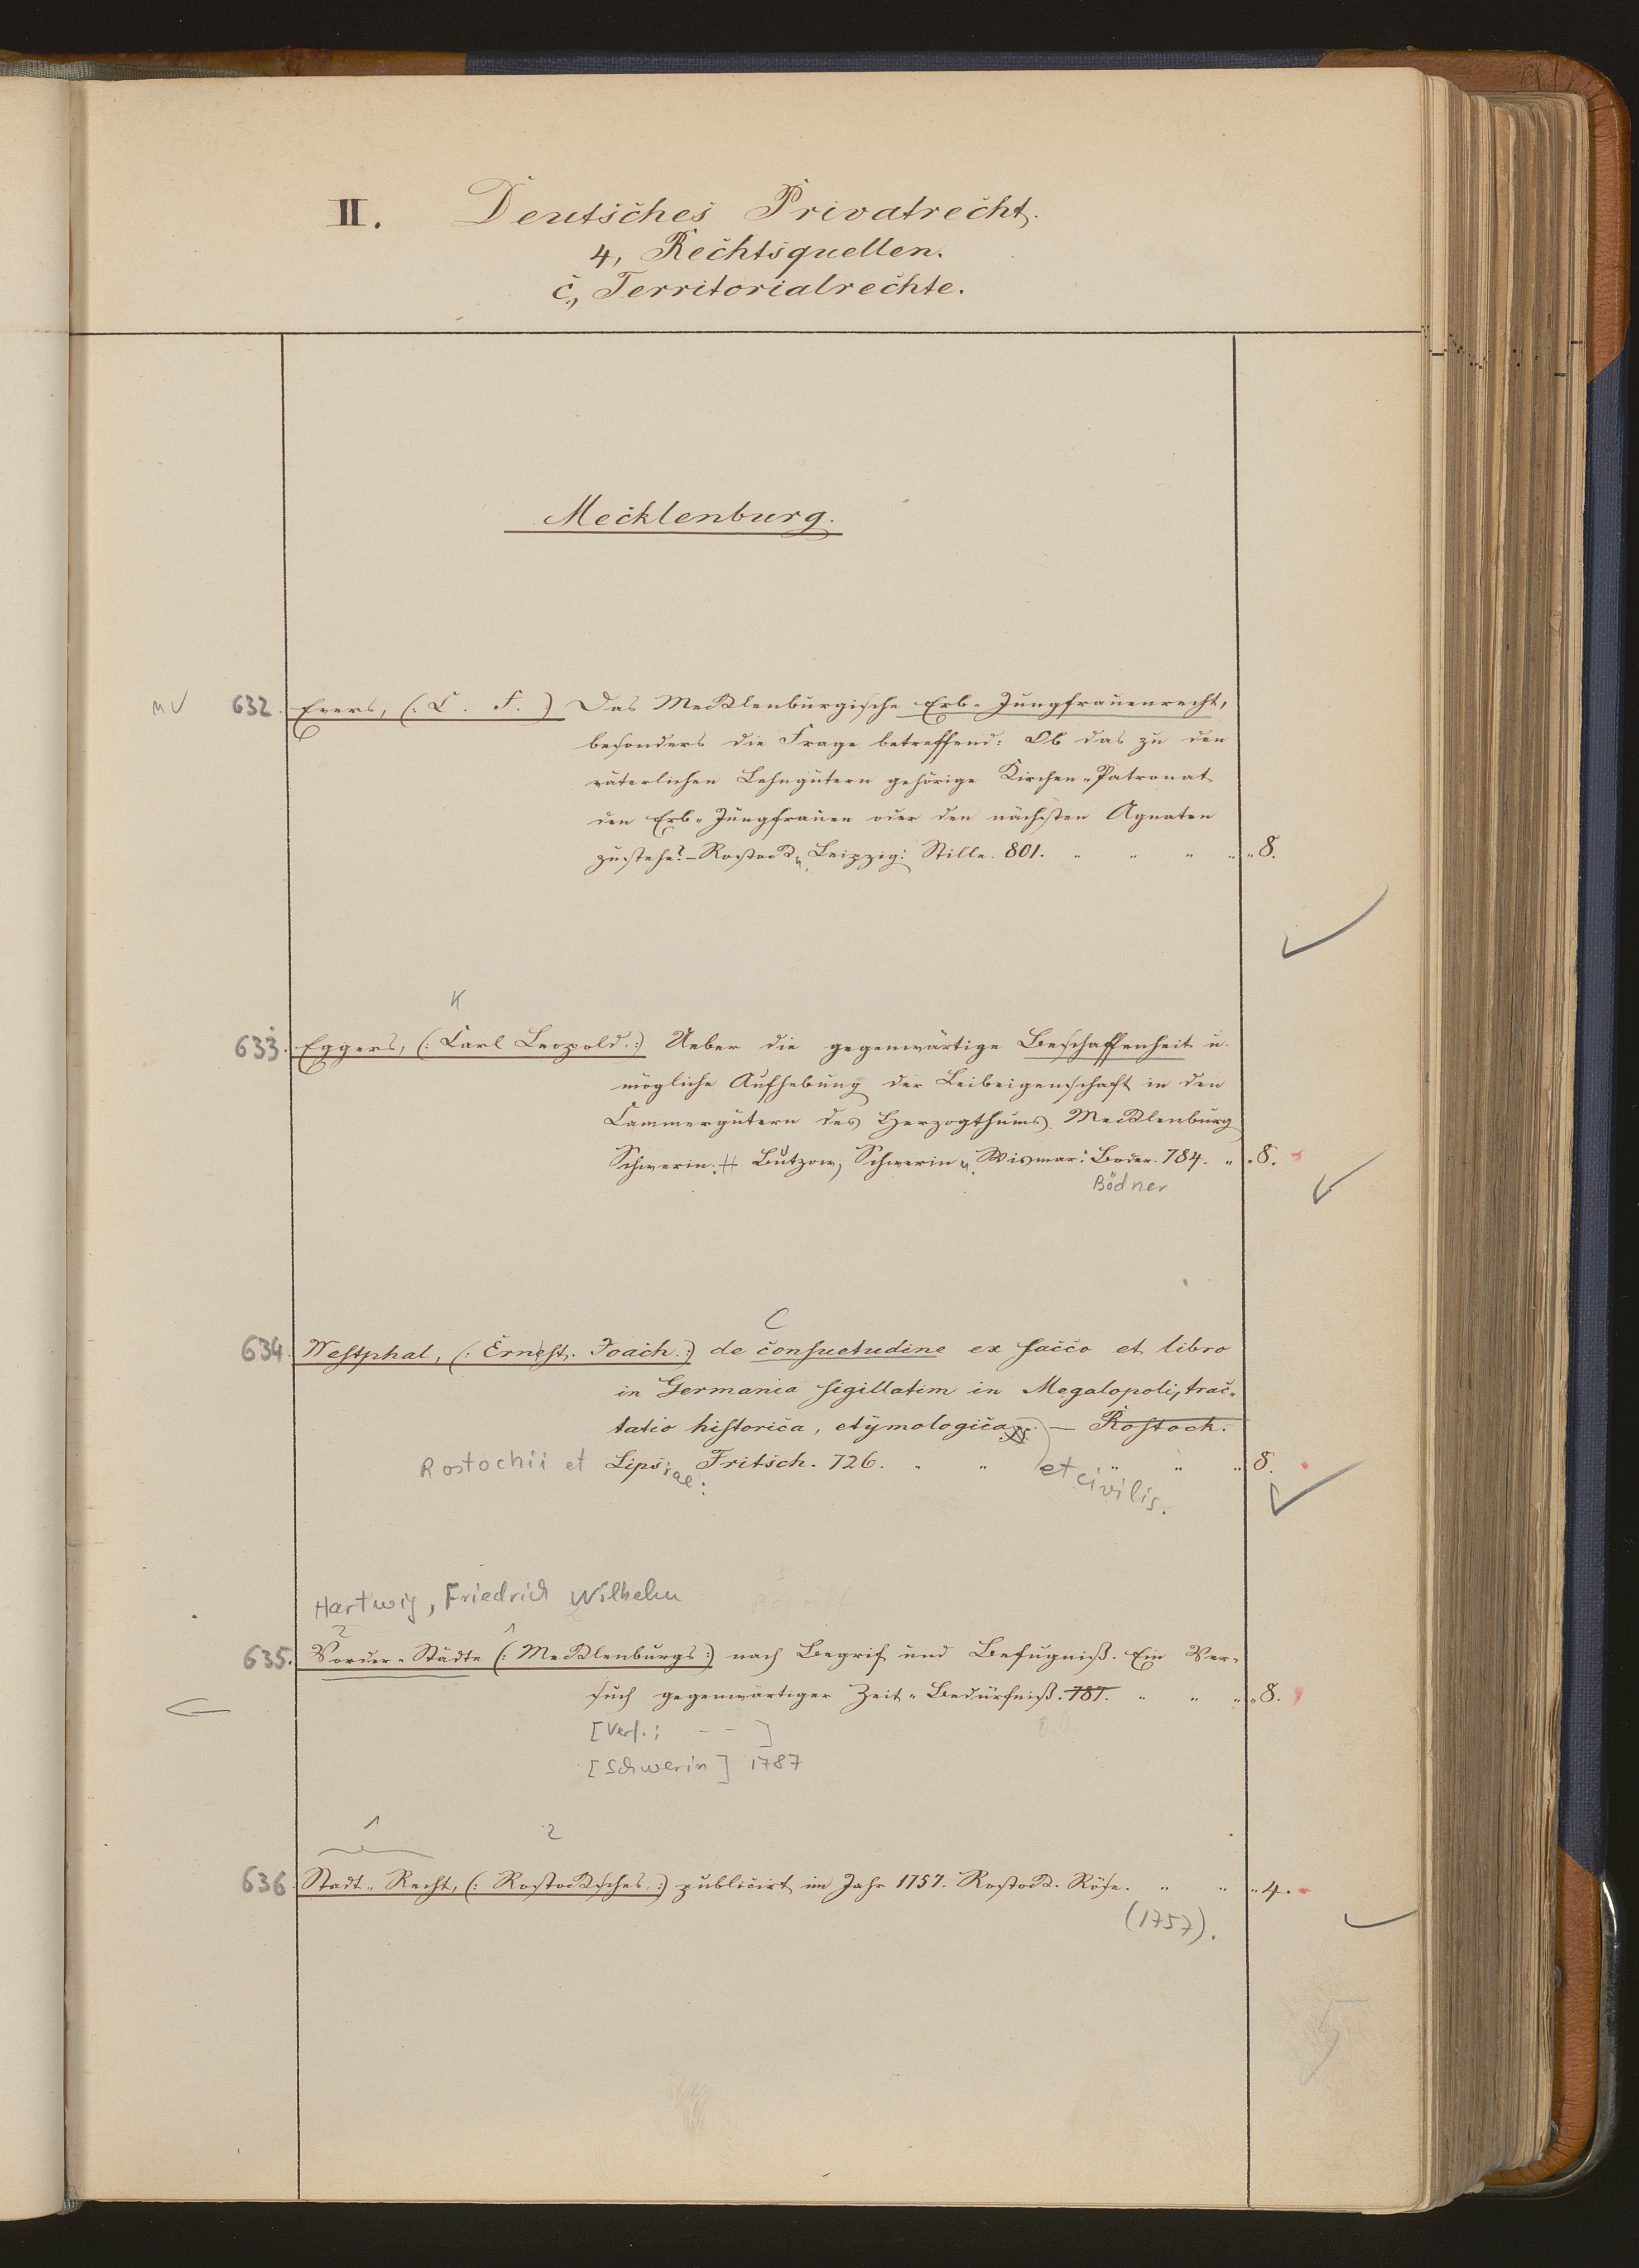 II. Deutsches Privatrecht.
4, Rechtsquellen.
c., Territorialrechte.
Mecklenburg.
632. Evers, (: C. F. ) Das Mecklenburgische Erb-Jungfrauenrecht,
besonders die Frage betreffend: Ob das zu den
väterlichen Lehngütern gehörige Kirchen-Patronat
den Erb-Jungfrauen oder den nächsten Agnaten
zustehe? – Rostock u. Leipzig: Stiller. 801. " " " " " 8.
K
633. Eggers, (: Carl Leopold :) Ueber die gegenwärtige Beschaffenheit u.
mögliche Aufhebung der Leibeigenschaft in den
Cammergütern des Herzogthums Mecklenburg
Schwerin. # Bützow, Schwerin u. Wismar: Boden. 784. " " 8.
Bödner
C
634. Westphal, (: Ernest. Joach. :) de consuetudine ex sacco et libro
in Germania sigillatim in Megalopoli, trac-
tatio historica, etymologica – Rostoch.
Rostochii et Lipsiae: Fritsch. 726. " " " " " 8.
et civilis.
Hartwig, Friedrich Wilhelm
2 1
635. Vorder-Städte (: Mecklenburgs :) nach Begrif und Befugniß. Ein Ver-
such gegenwärtiger Zeit-Bedürfniß. 787. " " " " 8.
[Verf.: – – ]
[Schwerin] 1787
1 2
636. Stadt-Recht, (: Rostocksches :) publicirt im Jahr 1757. Rostock. Röse. " " " 4.
(1757).
5